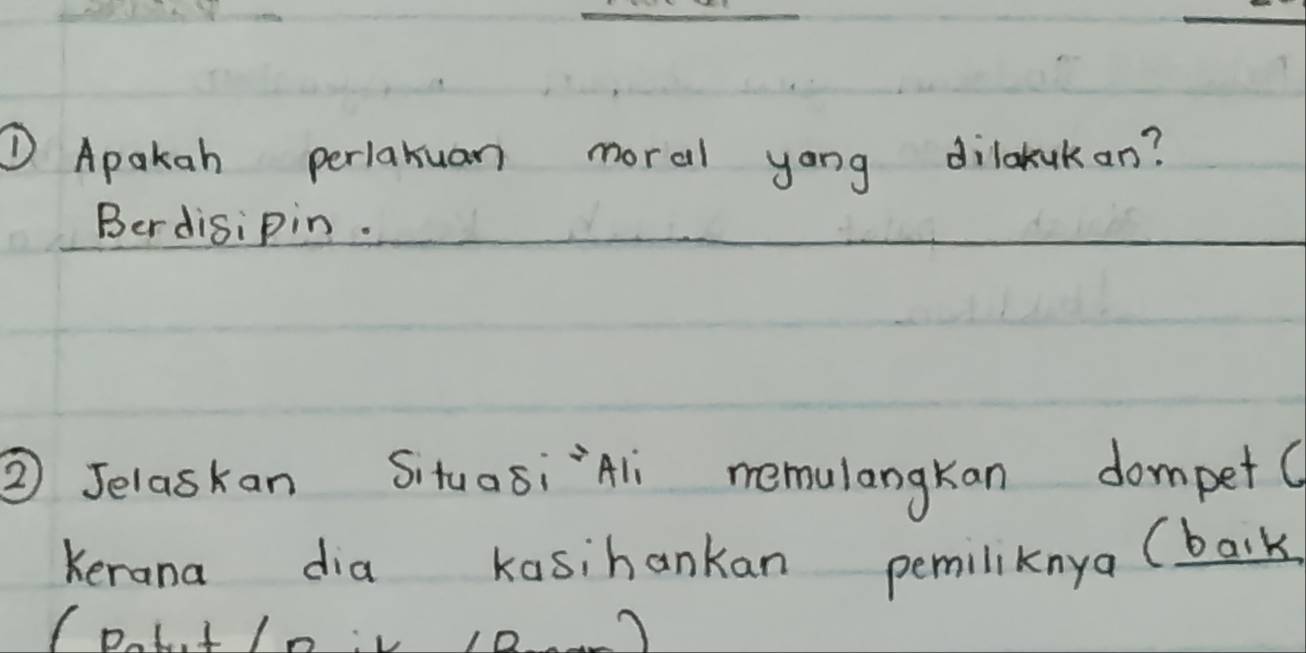 ① Apakah perlakuan moral yang dilakukan?
Berdisipin.
② Jelaskan Situasi Ali memulangkan dompet (
Kerana dia kasihankan pemiliknya (baik
(Patut /